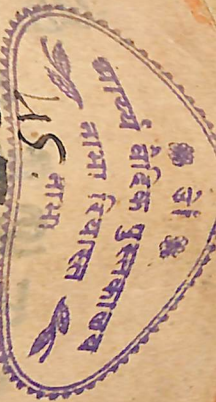 ओं
आर्य्य वैदिक पुस्तकालय
नाभा रियासत
नाभा